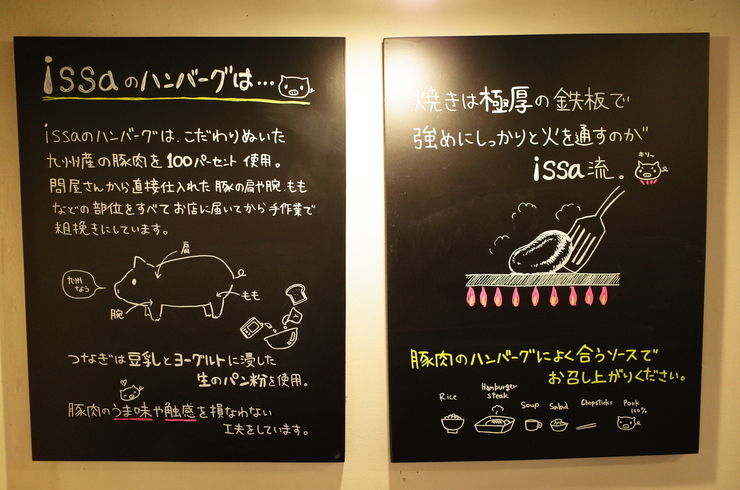 issaのハンバーグは…
issaのハンバーグは、こだわりぬいた
九州産の豚肉を100パーセント使用。
問屋さんから直接仕入れた豚の肩や腕、もも
などの部位をすべてお店に届いてから手作業で
粗挽きにしています。
肩
九州
なう
もも
腕
つなぎは豆乳とヨーグルトに浸した
生のパン粉を使用。
豚肉のうま味や触感を損なわない
工夫をしています。
焼きは極厚の鉄板で
強めにしっかりと火を通すのが
issa流。
キリ〜
豚肉のハンバーグによく合うソースで
お召し上がりください。
Rice
Hamburger
steak
Soup
Salad
Chopsticks
Pork
100%